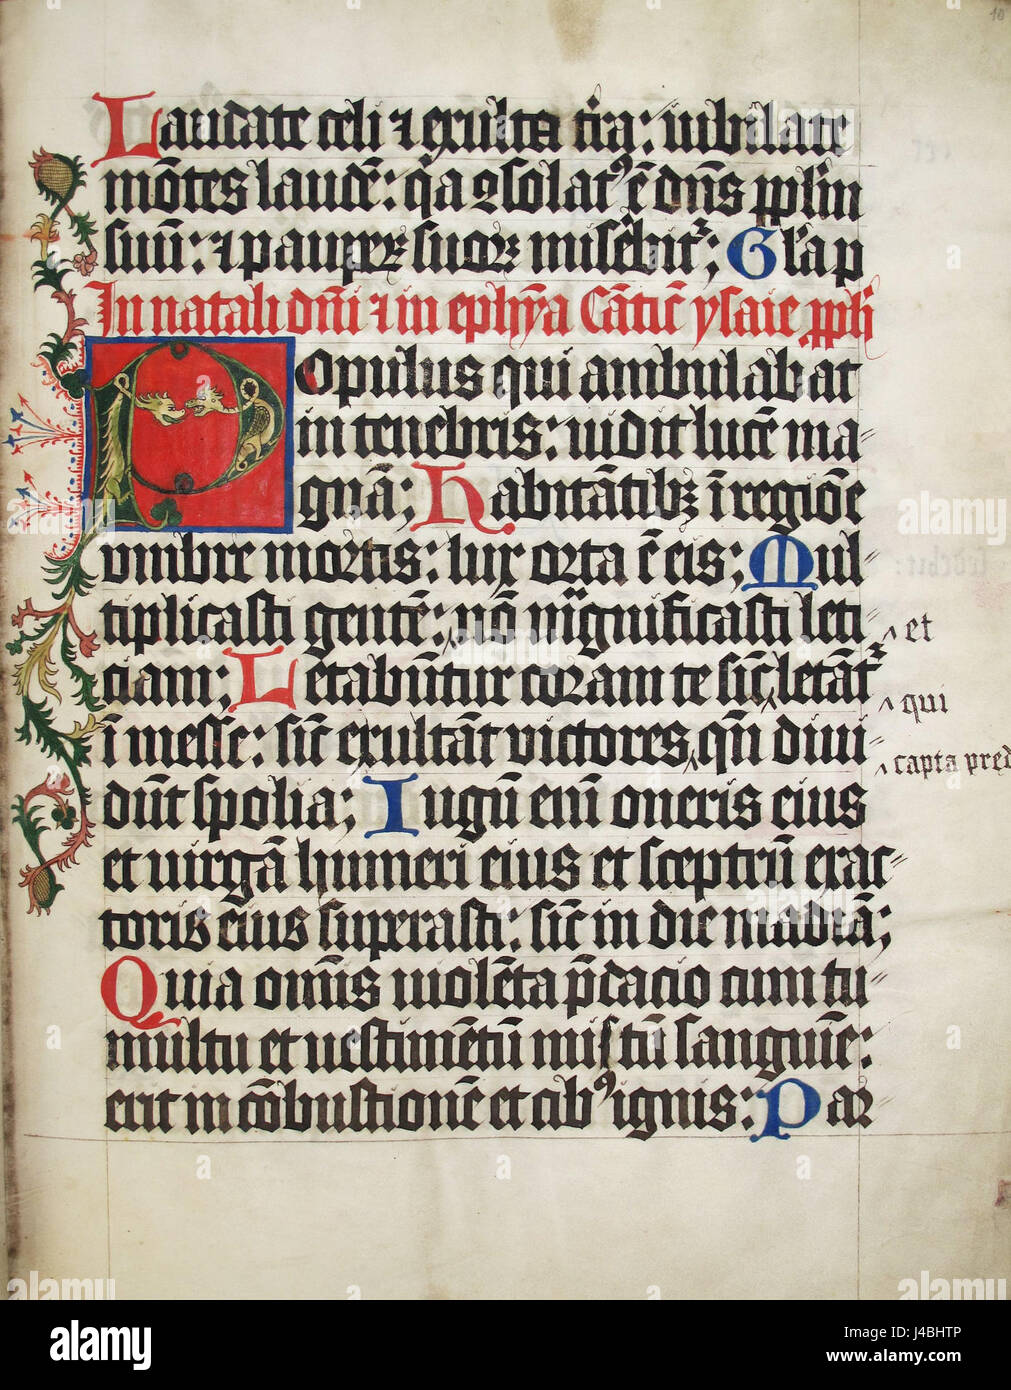 10
Laudate celi ⁊ exulta t̃ra: iubilate
mōtes laudē: q̃a ꝯsolatꝰ ē dn̄s ppl̄m
suū: ⁊ pauperꝝ suoꝝ miserebit᷑; Gl̃a p
In natali dn̄i ⁊ in epħya Cātic̄ ysaie ppħ
Populus qui ambulabat
in tenebris: uidit lucē ma⸗
gnā; Habitātibꝫ ī regiōe
vmbre mortis: lux orta ē eis; Mul
tiplicasti gentē: ‸ nō magnificasti leti ‸ et
ciam; Letabūtur coram te sic̄ ‸ letāt᷑ ‸ qui
ī messe: sic̄ exultāt victores ‸ qn̄ diui ‸ capta pred
dūt spolia; Iugū em̄ oneris eius
et uirgā humeri eius et sceptrū exac⸗
toris eius superasti: sic̄ in die madiā;
Quia om̄is uiolēta p̄dacio cum tu⸗
multu et uestimētū mistū sanguīe:
erit in cōbustionē et cibꝰ ignis: Par
alamy
Image ID: J4BHTP
www.alamy.com